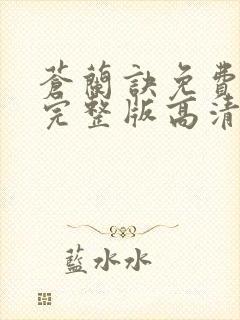 蒼蘭訣免費
完整版高清
藍水水